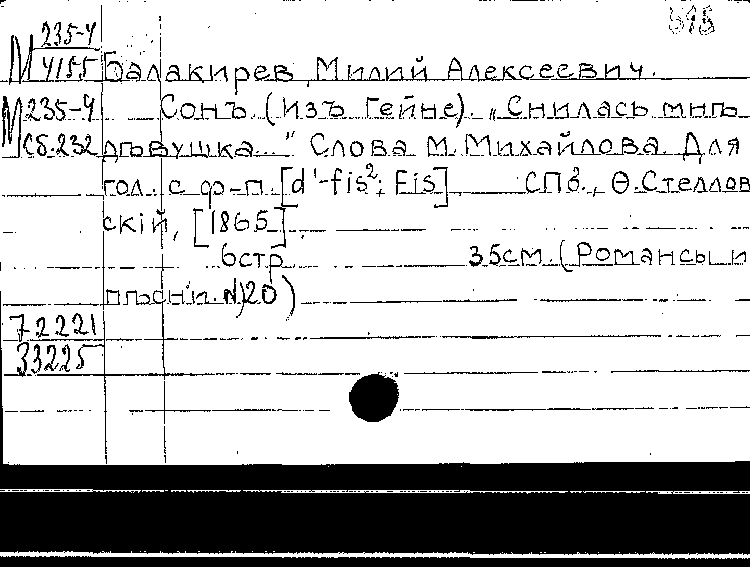 М 235-4
4155 Балакирев, Милий Алексеевич.
М 235-4 Сонъ. (Изъ Гейне). „Снилась мнѣ
Сб.232 дѣвушка..." Слова М. Михайлова. Для
гол. с ф-п. [d¹-fis²; Fis] СПб., Ѳ.Стеллов
скій, [1865].
6стр 35см. (Романсы и
пѣсни. №20)
72221
33225